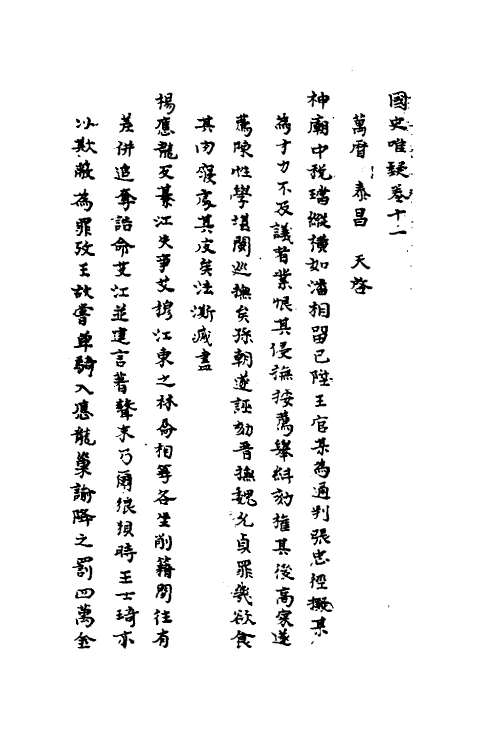 國史唯疑卷十一
萬曆 泰昌 天啓
神廟中稅璫縱橫如潘相留已陞王官某為通判張忠徑擬某
為才力不及議者業恨其侵撫按薦舉糾劾權其後高寀遂
薦陳性學堪閩巡撫矣孫朝遂誣劾晋撫魏允貞罪幾欲食
其肉寢處其皮矣法漸滅盡
楊應龍叉綦江失事艾穆江東之林喬相等各坐削籍閒住有
差併追奪誥命艾江並建言著聲末乃爾狼狽時王士琦亦
以欺蔽為罪攷王故嘗单騎入應龍巢諭降之罰四萬金